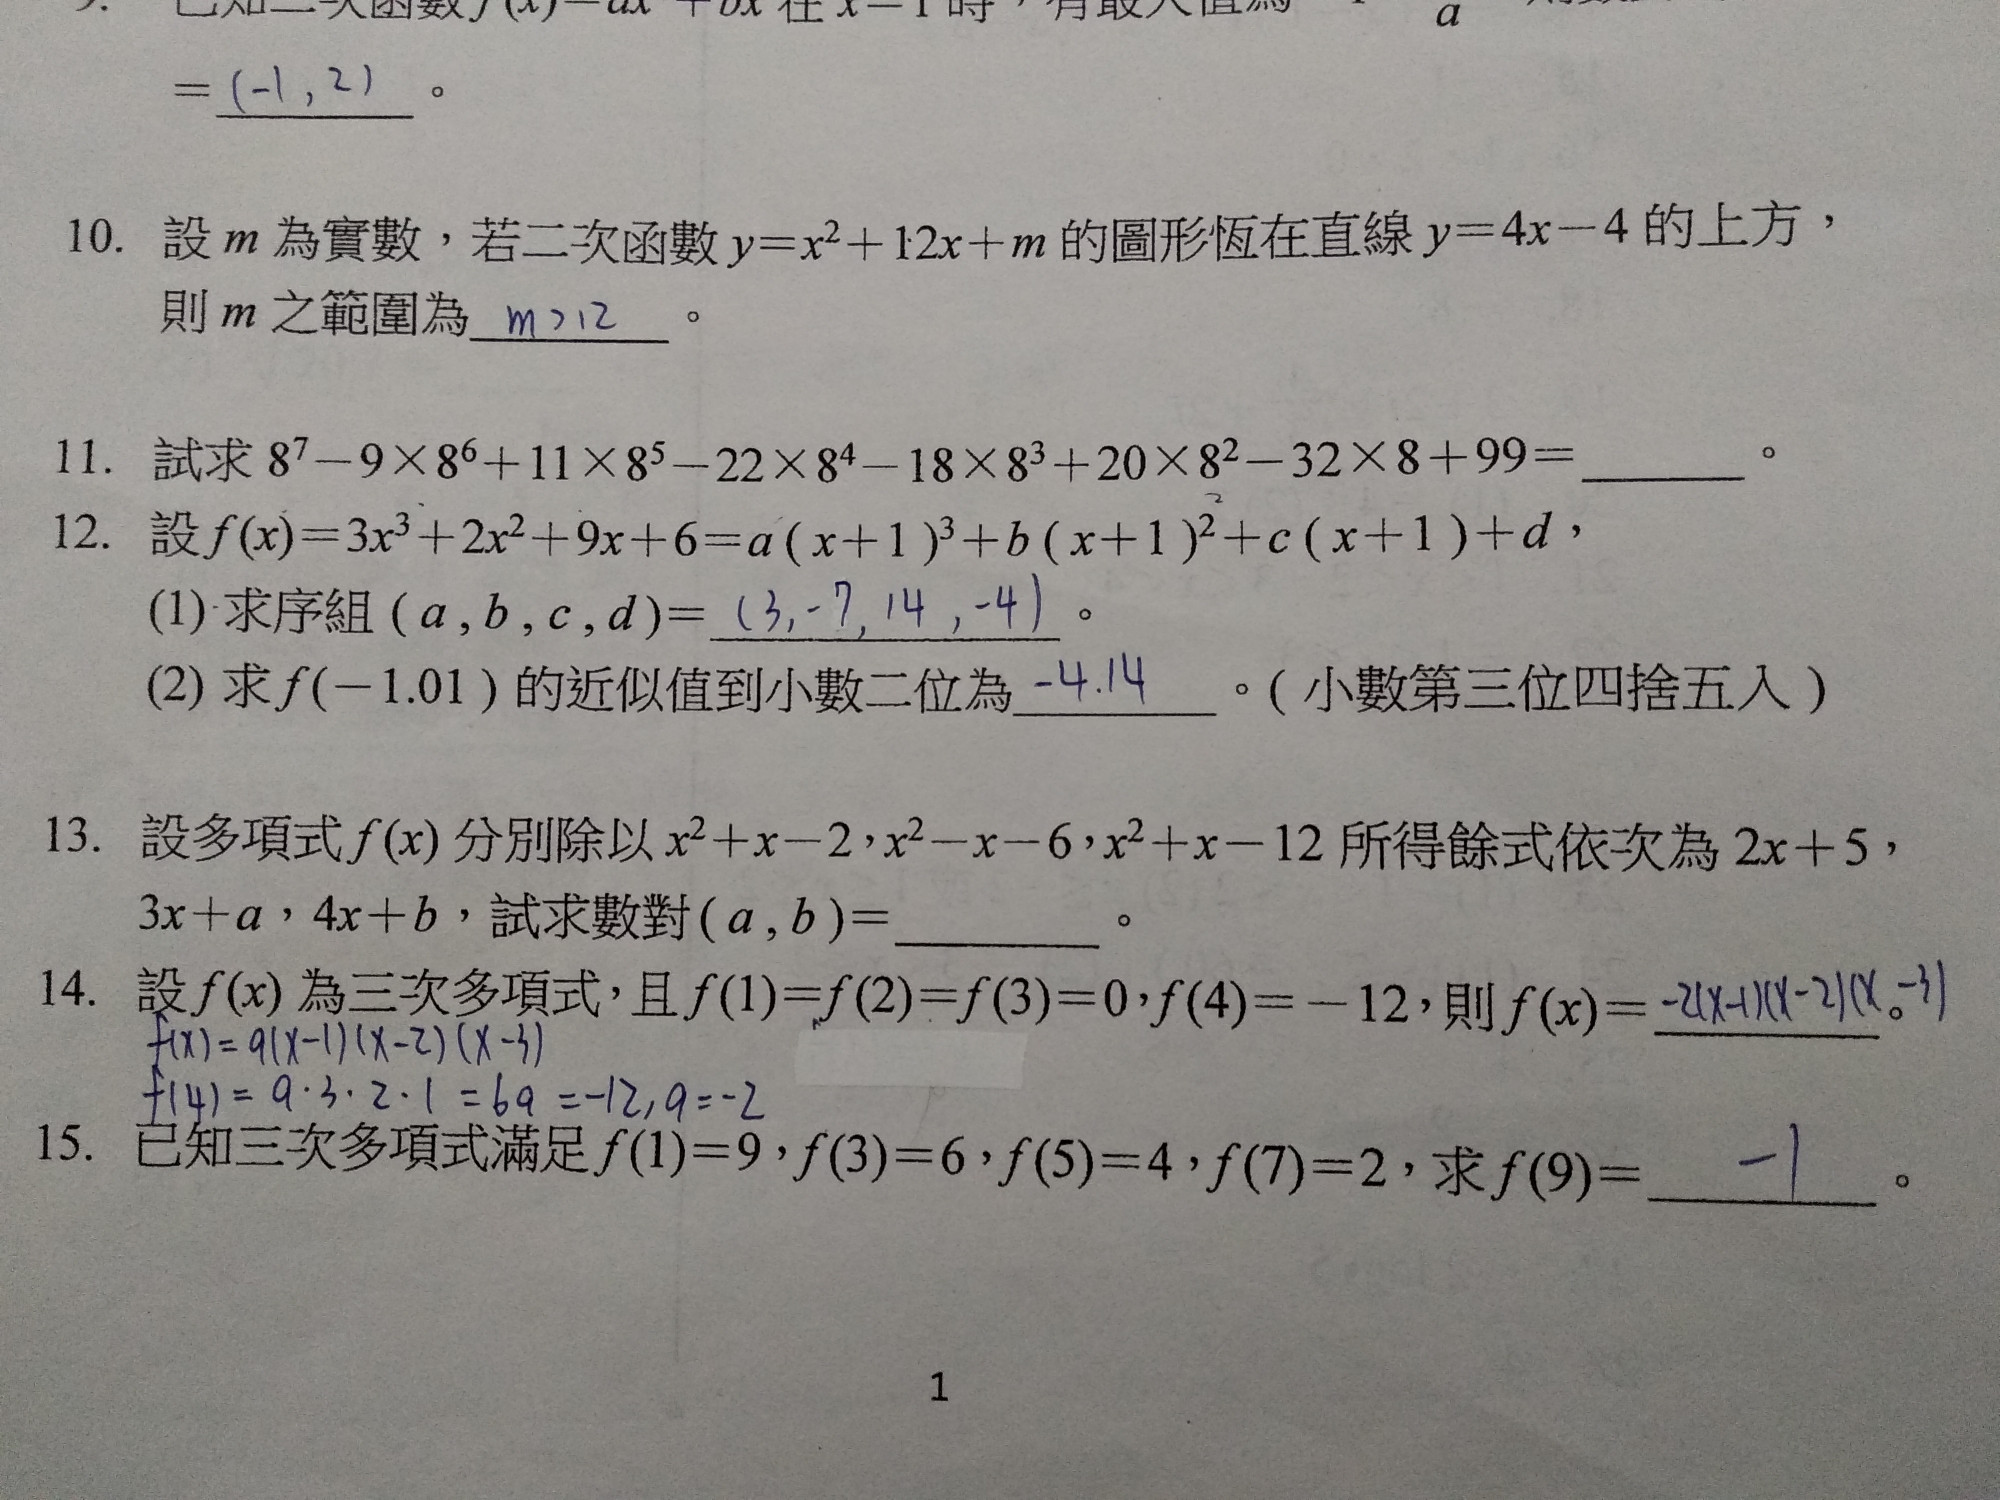 9. 已知二次函數 f(x)=ax²+bx 在 x=1 時，有最大值為
a
=(-1, 2)。
10. 設 m 為實數，若二次函數 y=x²+12x+m 的圖形恆在直線 y=4x－4 的上方，
則 m 之範圍為 m>12 。
11. 試求 8⁷－9×8⁶＋11×8⁵－22×8⁴－18×8³＋20×8²－32×8＋99＝______。
12. 設 f(x)=3x³+2x²+9x+6=a(x+1)³+b(x+1)²+c(x+1)+d，
(1) 求序組 (a,b,c,d)= (3,-7,14,-4)。
(2) 求 f(－1.01) 的近似值到小數二位為 -4.14 。(小數第三位四捨五入)
13. 設多項式 f(x) 分別除以 x²+x－2，x²－x－6，x²+x－12 所得餘式依次為 2x+5，
3x+a，4x+b，試求數對(a,b)=______。
14. 設 f(x) 為三次多項式，且 f(1)=f(2)=f(3)=0，f(4)=－12，則 f(x)= -2(x-1)(x-2)(x-3)。
f(x)=a(x-1)(x-2)(x-3)
f(4)=a·3·2·1=6a=-12, a=-2
15. 已知三次多項式滿足 f(1)=9，f(3)=6，f(5)=4，f(7)=2，求 f(9)= -1 。
1